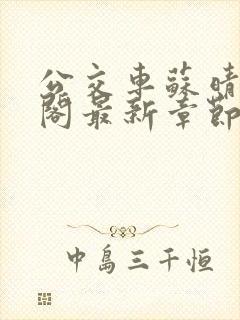 公交車蘇晴
閣最新章節
中島三千恒